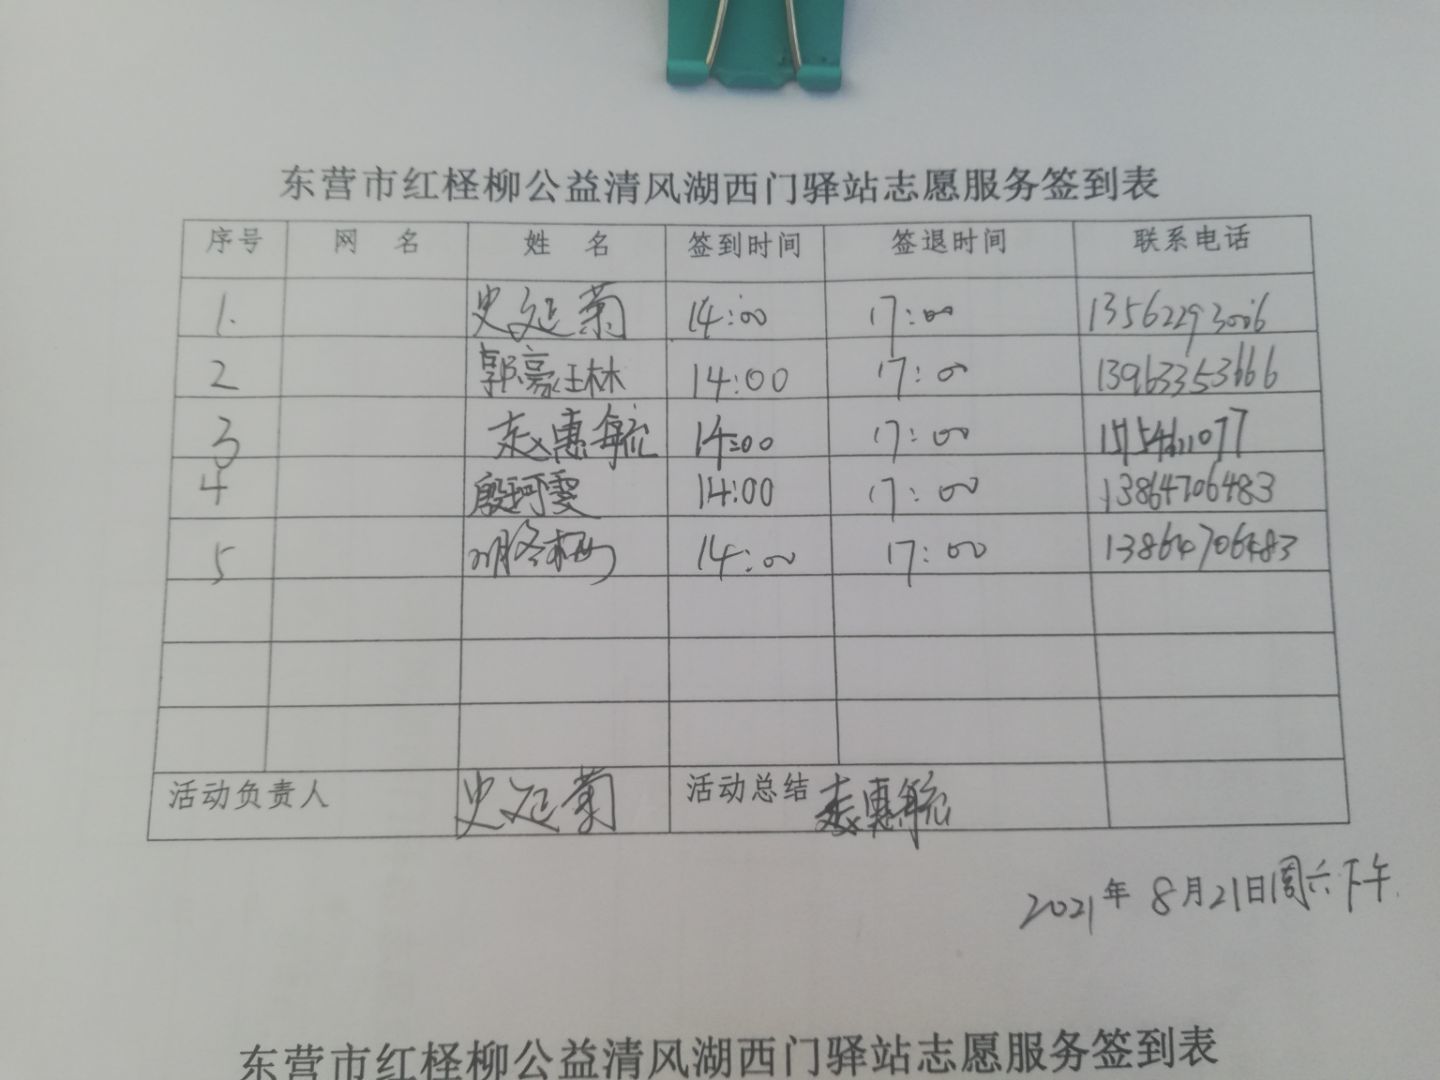 东营市红柽柳公益清风湖西门驿站志愿服务签到表
序号 网 名 姓 名 签到时间 签退时间 联系电话
1. 史延菊 14:00 17:00 13562293006
2 郭豪钰林 14:00 17:00 13963353666
3 赵惠毓 14:00 17:00
4 殷珂雯 14:00 17:00 13864706483
5 胡冬梅 14:00 17:00 13864706483
活动负责人 史延菊 活动总结 赵惠毓
2021年 8月21日周六下午
东营市红柽柳公益清风湖西门驿站志愿服务签到表